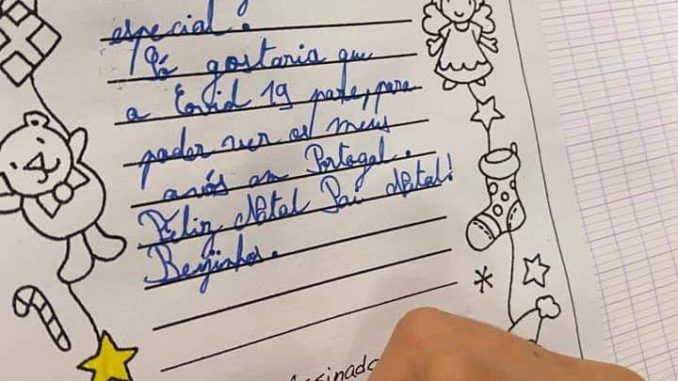 especial.
Só gostaria que
a Covid 19 pare, para
poder ver os meus
avós em Portogal.
Feliz Natal Pai Natal!
Beijinhos.
Assinado